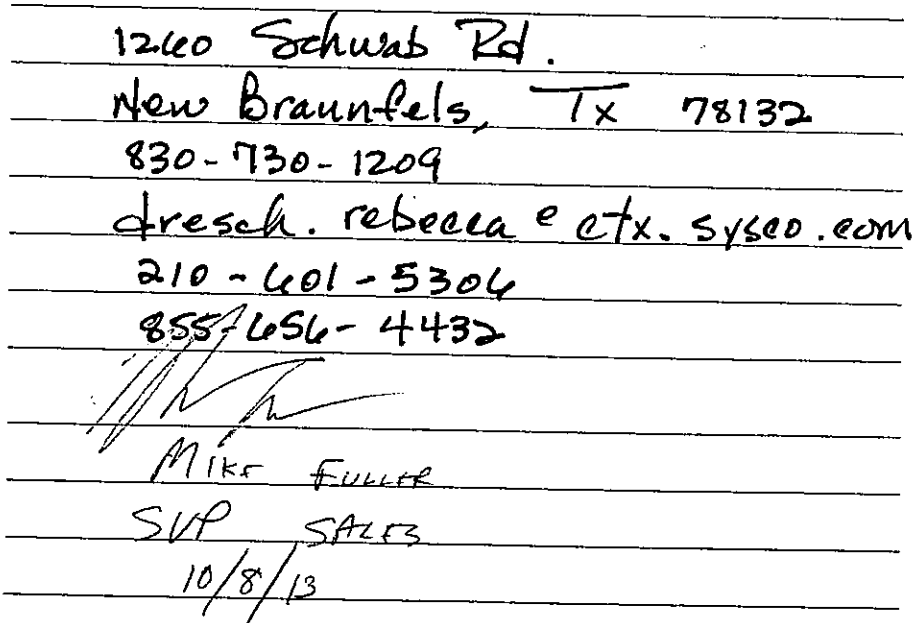 1260 Schwab Rd.
New Braunfels, Tx 78132
830-730-1209
dresch.rebecca@ctx.sysco.com
210-601-5306
855-656-4432
MIKE FULLER
SVP SALES
10/8/13